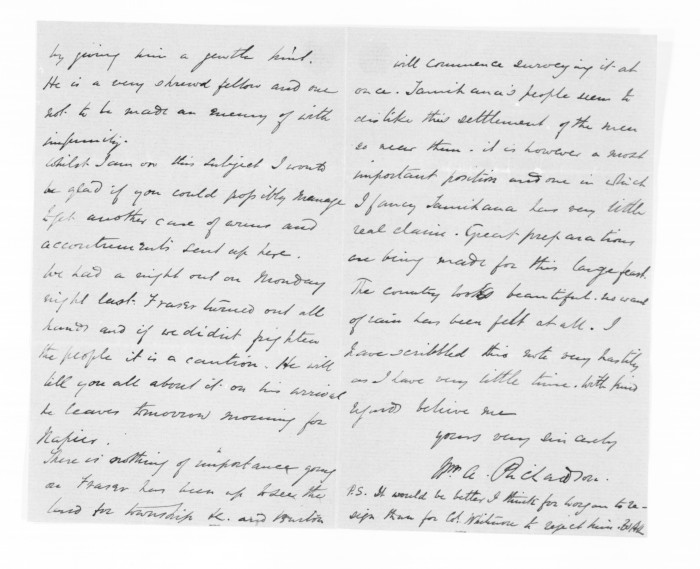 by giving him a gentle hint.
He is a very shrewd fellow and one
not to be made an enemy of with
impunity.
Whilst I am on this subject I would
be glad if you could possibly manage
to get another case of arms and
accoutrements sent up here.
We had a night out on Monday
night last. Fraser turned out all
hands and if we didist frighten
the people it is a caution. He will
tell you all about it on his arrival
he leaves tomorrow morning for
Napier.
There is nothing of importance going
on Fraser has been up to see the
land for township &c. and
will commence surveying it at
once. Tamihana's people seem to
dislike this settlement of the men
so near them. it is however a most
important position and one in which
I fancy Tamihana has very little
real claim. Great preparations
are being made for this large feast.
The country looks beautiful. no want
of rain has been felt at all. I
have scribbled this note very hastily
as I have very little time. With kind
regards believe me
yours very sincerely
Wm A. Richardson.
P.S. It would be better I think for Morgan to re-
sign than for Col. Whitmore to reject him.